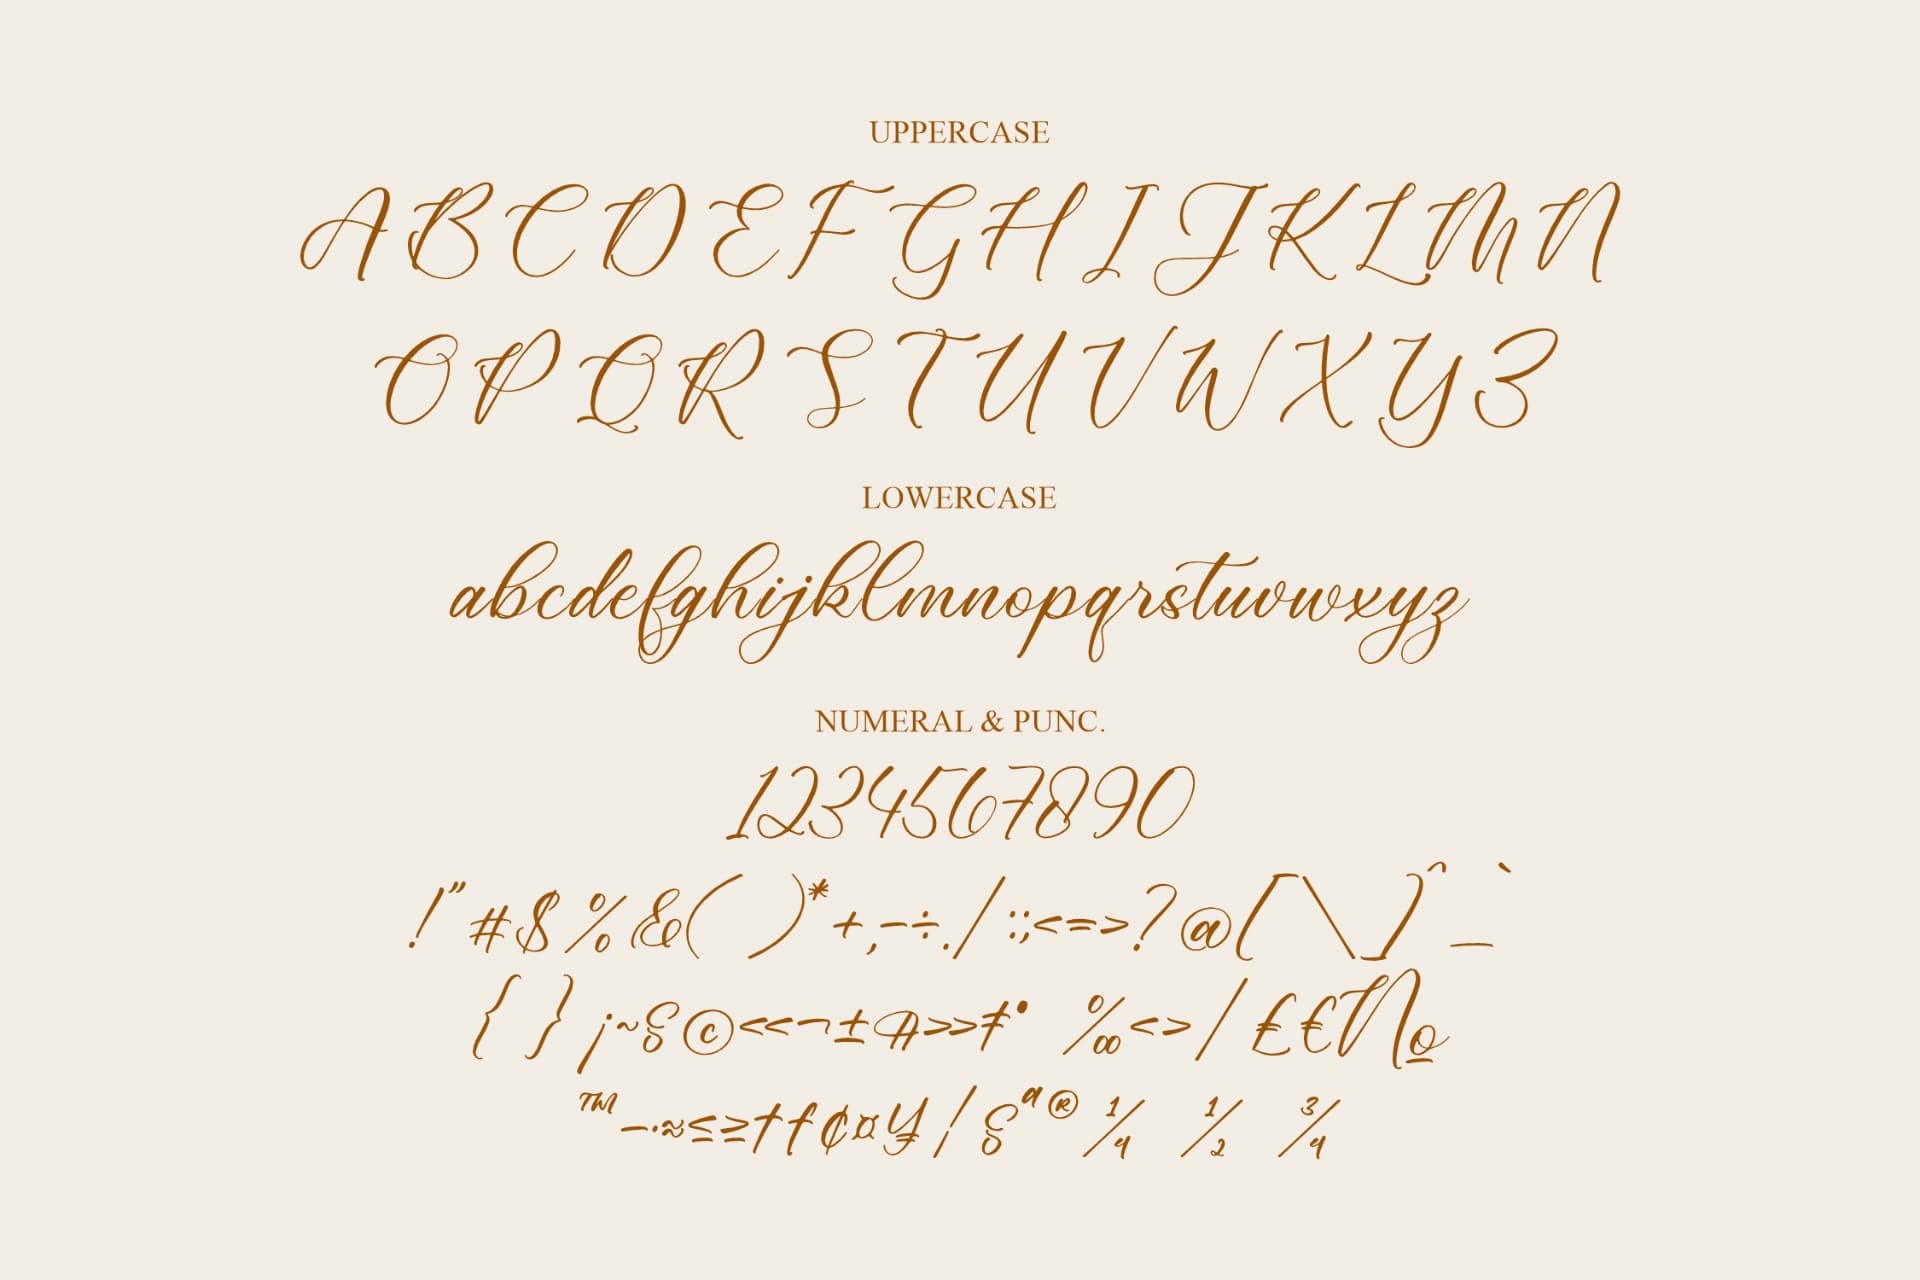 UPPERCASE
A B C D E F G H I J K L M N
O P Q R S T U V W X Y Z
LOWERCASE
abcdefghijklmnopqrstuvwxyz
NUMERAL & PUNC.
1234567890
!"#$%&( )*+,-÷./:;<=>?@[\]^_`
{ }¡~§©<<¬±A>>‡• ‰<>/£€№
™–·≈≤≥†ƒ¢¤¥¦§ª®¼ ½ ¾